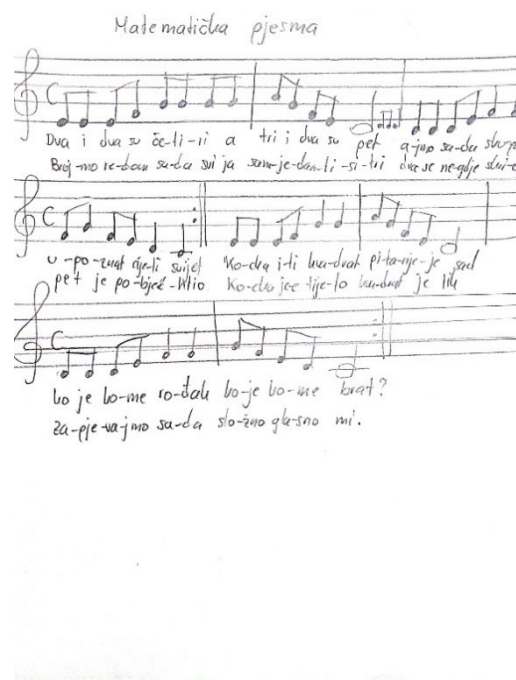 Matematička pjesma
Dva i dva su če-ti-ri a tri i dva su pet a-jmo sa-da skup
Broj-mo re-dom sada svi ja sam-je-dan-ti-si-tri dva se ne-gdje skri-o
u-po-znat cije-li svijet Ko-cka i-li kva-drat pi-ta-nje-je sad
pet je po-bjed-nio Ko-cka je tije-lo kva-drat je lik
ko je ko-me ro-đak ko-je ko-me brat?
za-pje-va-jmo sa-da slo-žno gla-sno mi.